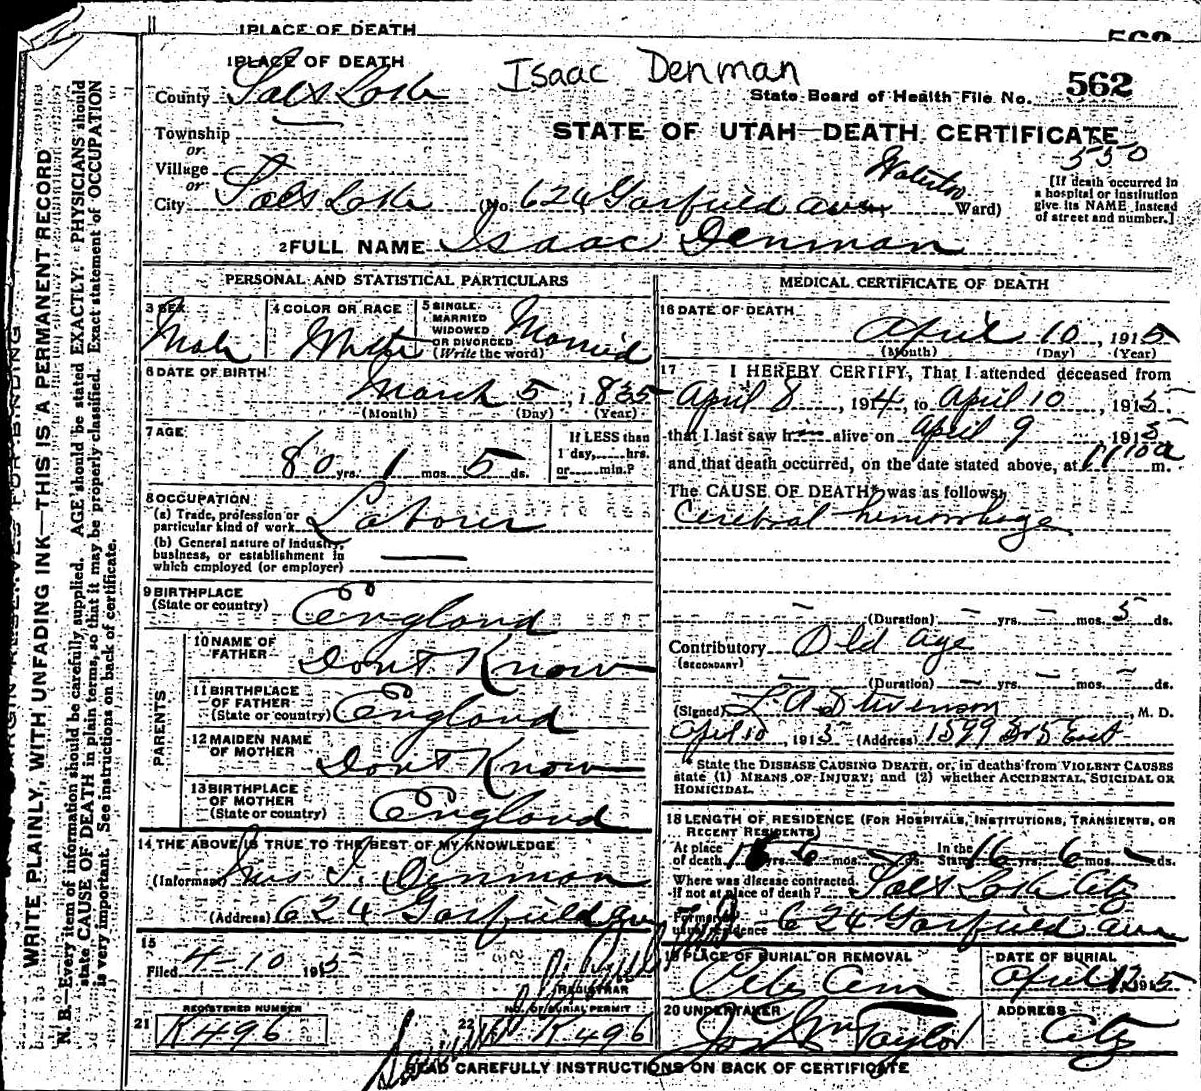 1 PLACE OF DEATH
562
1 PLACE OF DEATH
Isaac Denman
County Salt Lake
State Board of Health File No. 562
Township
or
STATE OF UTAH—DEATH CERTIFICATE
550
Village
or
Waterloo
City Salt Lake (No. 624 Garfield ave Ward)
[If death occurred in
a hospital or institution
give its NAME instead
of street and number.]
2 FULL NAME Isaac Denman
PERSONAL AND STATISTICAL PARTICULARS
3 SEX Male
4 COLOR OR RACE White
5 SINGLE
MARRIED
WIDOWED
OR DIVORCED
(Write the word) Married
6 DATE OF BIRTH
March 5, 1835
(Month) (Day) (Year)
7 AGE
80 yrs. 1 mos. 5 ds.
If LESS than
1 day, hrs.
or min.?
8 OCCUPATION
(a) Trade, profession or
particular kind of work Laborer
(b) General nature of industry,
business, or establishment in
which employed (or employer)
9 BIRTHPLACE
(State or country) England
PARENTS
10 NAME OF
FATHER Dont Know
11 BIRTHPLACE
OF FATHER
(State or country) England
12 MAIDEN NAME
OF MOTHER Dont Know
13 BIRTHPLACE
OF MOTHER
(State or country) England
14 THE ABOVE IS TRUE TO THE BEST OF MY KNOWLEDGE
(Informant) Mrs I. Denman
(Address) 624 Garfield ave
15
Filed 4-10 1915
REGISTRAR
REGISTERED NUMBER
21 K496
NO. OF BURIAL PERMIT
22 K496
MEDICAL CERTIFICATE OF DEATH
16 DATE OF DEATH
April 10, 1915
(Month) (Day) (Year)
17 I HEREBY CERTIFY, That I attended deceased from
April 8, 1914, to April 10, 1915
that I last saw him alive on April 9 1915
and that death occurred, on the date stated above, at 11:10 a m.
The CAUSE OF DEATH* was as follows:
Cerebral hemorrhage
(Duration) — yrs. — mos. 5 ds.
Contributory Old age
(SECONDARY)
(Duration) — yrs. — mos. — ds.
(Signed) L A Stevenson, M. D.
April 10 1915 (Address) 1599 So 5 East
* State the DISEASE CAUSING DEATH, or, in deaths from VIOLENT CAUSES
state (1) MEANS OF INJURY; and (2) whether ACCIDENTAL, SUICIDAL OR
HOMICIDAL.
18 LENGTH OF RESIDENCE (FOR HOSPITALS, INSTITUTIONS, TRANSIENTS, OR
RECENT RESIDENTS)
At place
of death 16 yrs. 6 mos. ds. In the
State 16 yrs. 6 mos. — ds.
Where was disease contracted,
if not at place of death? Salt Lake City
Former or
usual residence 624 Garfield ave
19 PLACE OF BURIAL OR REMOVAL
City Cem
DATE OF BURIAL
April 1915
20 UNDERTAKER
Jos Wm Taylor
ADDRESS
City
READ CAREFULLY INSTRUCTIONS ON BACK OF CERTIFICATE
MARGIN RESERVED FOR BINDING
WRITE PLAINLY, WITH UNFADING INK—THIS IS A PERMANENT RECORD
N. B.—Every item of information should be carefully supplied. AGE should be stated EXACTLY. PHYSICIANS should
state CAUSE OF DEATH in plain terms, so that it may be properly classified. Exact statement of OCCUPATION
is very important. See instructions on back of certificate.